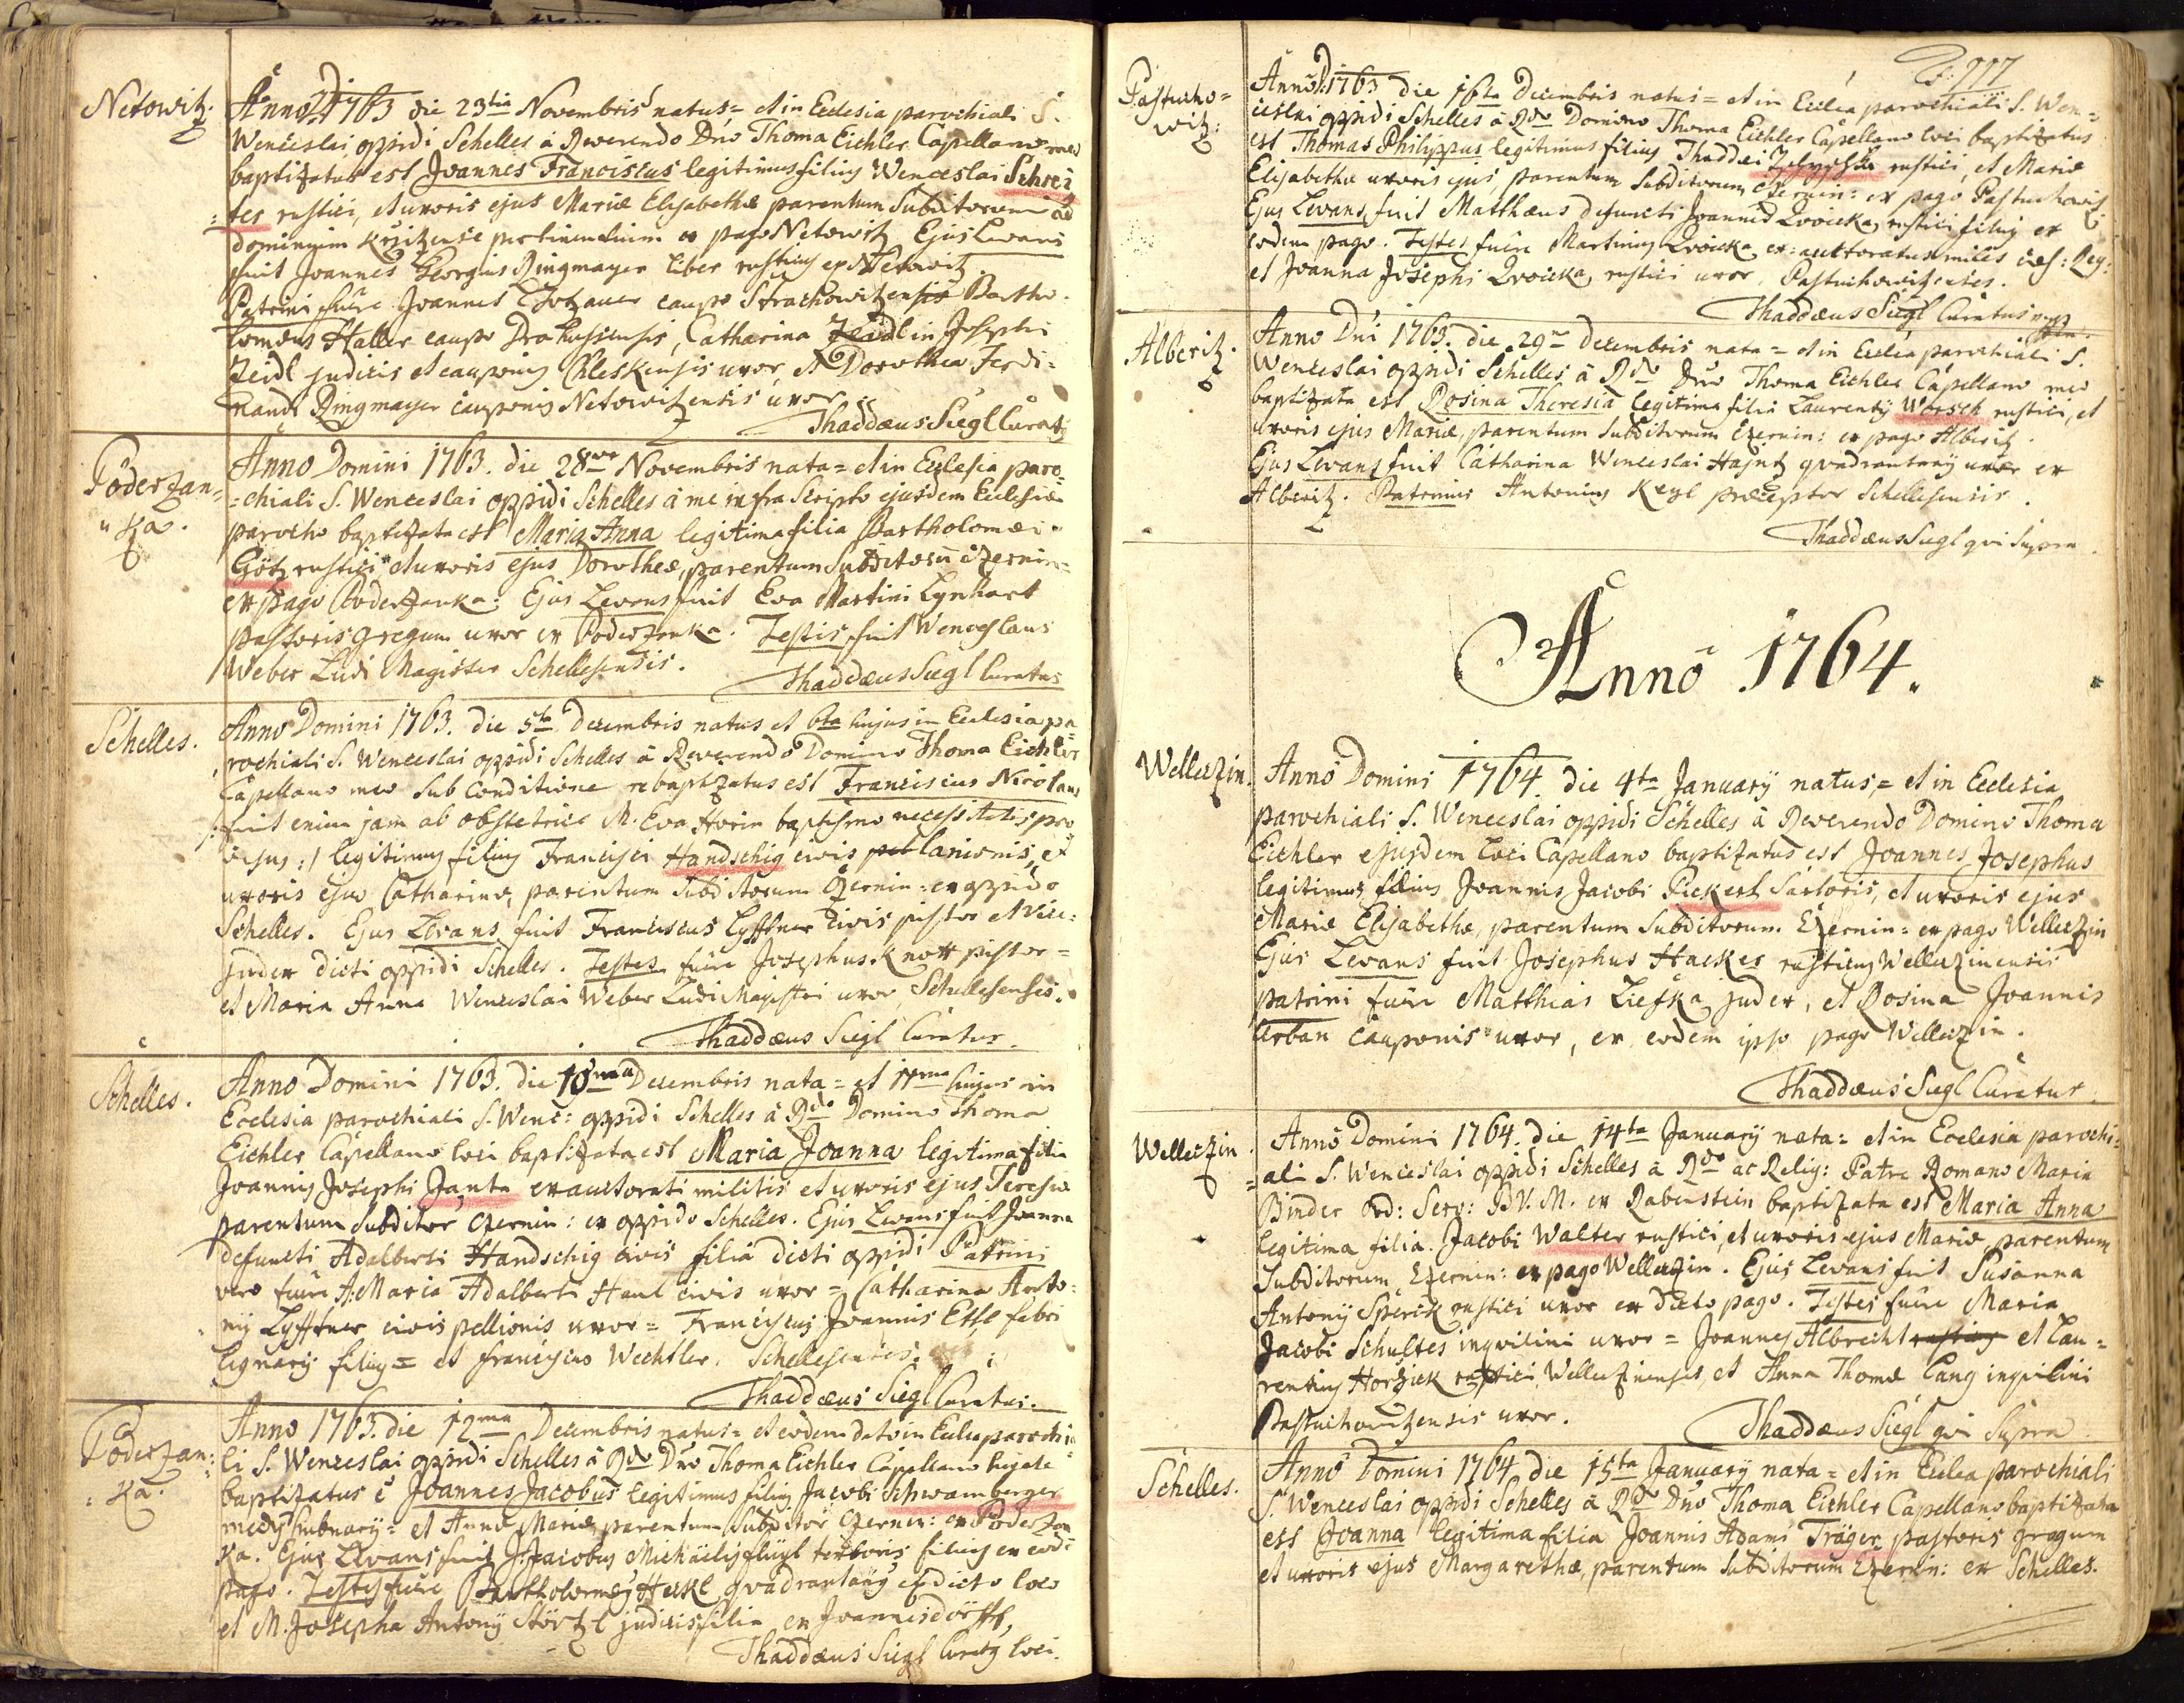 Netowitz.
Anno D. 1763 die 23tia Novembris natus = et in Ecclesia parochiali S.
Wenceslai oppidi Schelles à Reverendo Dno Thoma Eichler Capellano meo
baptizatus est Joannes Franciscus legitimus filius Wenceslai Schrei
=ter rustici, et uxoris ejus Mariæ Elisabethæ parentum Subditorum ad
dominium pertinentium ex pago Netowitz. Ejus Levans
fuit Joannes Georgius Ringmayer liber rusticus ex Netowitz.
Patrini fuêre Joannes caupo Strachowitzensis Bartho-
lomæus Haller caupo, Catharina Zeidlin Josephi
Zeidl judicis et cauponis Chleskensis uxor, et Dorothea Ferdi=
nandi Ringmayer cauponis Netowitzensis uxor.
Thaddæus Siegl Curatus
Poderzan=
"ka.
Anno Domini 1763. die 28va Novembris nata = et in Ecclesia paro
=chiali S. Wenceslai oppidi Schelles à me infra Scripto ejusdem Ecclesiæ
parocho baptizata est Maria Anna legitima filia Bartholomæi
Götz rustici et uxoris ejus Dorotheæ, parentum Subditorū Czernin=
ex pago Poderzanka: Ejus Levans fuit Eva Martini Lynhart
pastoris gregum uxor ex Poderzanka. Testis fuit Wenceslaus
Weber Ludi Magister Schellesensis.
Thaddæus Siegl Curatus
Schelles.
Anno Domini 1763. die 5ta Decembris natus et 6ta hujus in Ecclesia pa=
rochiali S. Wenceslai oppidi Schelles à Reverendo Domino Thoma Eichler
Capellano meo Sub Conditione rebaptizatus est Franciscus Nicolaus
/: fuit enim jam ab obstetrice M. Eva Horin baptismo necessitatis pro
visus :/ legitimus filius Francisci Handschig civis lanionis, et
uxoris ejus Catharinæ, parentum Subditorum Czernin: ex oppido
Schelles. Ejus Levans fuit Franciscus Lyfftner civis pistor et Vice=
judex dicti oppidi Schelles. Testes fuêre Josephus Knott pistor=
et Maria Anna Wenceslai Weber Ludi Magistri uxor, Schellesenses.
Thaddæus Siegl Curatus.
Schelles.
Anno Domini 1763. die 10ma Decembris nata = et 11ma hujus in
Ecclesia parochiali S. Wenc: oppidi Schelles à Rdo Domino Thoma
Eichler Capellano loci baptizata est Maria Joanna legitima filia
Joannis Josephi Janta exauctorati militis et uxoris ejus Teresiæ
parentum Subditor Czernin: ex oppido Schelles. Ejus Levans fuit Joanna
defuncti Adalberti Handschig civis filia dicti oppidi Patrini
vero fuêre A: Maria Adalberti Hanl civis uxor = Catharina Anto=
nij Lyfftner civis pellionis uxor = Franciscus Joannis Etsl fabri
lignarij filius = et Franciscus Wechtler, Schellesenses.
Thaddæus Siegl Curatus.
Poderzan=
=ka.
Anno 1763. die 12ma Decembris natus = et eodem dato in Ecclia parochia
li S. Wenceslai oppidi Schelles à Rdo Dno Thoma Eichler Capellano hujate
baptizatus ē Joannes Jacobus legitimus filius Jacobi Schwamberger
medij hubnarij = et Annæ Mariæ parentum Subditor Czernin: ex Poderzan
ka. Ejus Levans fuit Jacobus Michaëlis flügl textoris filius ex eodē
pago. Testes fuêre Bartholomæj Heckl quadrantarij ex dicto loco
et M. Josepha Antonij Störtzl judicis filia ex Joannisdörff,
Thaddæus Siegl Curatus loci.
F: 717
Pastucho=
witz:
Anno D. 1763 die 16ta Decembris natus = et in Ecclea parochiali S. Wen=
ceslai oppidi Schelles à Rdo Domino Thoma Eichler Capellano loci baptizatus
est Thomas Philippus legitimus filius Thaddæi rustici, et Mariæ
Elisabethæ uxoris ejus parentum Subditorum Czernin: ex pago Pastuchowitz
Ejus Levans fuit Matthæus defuncti Joannis Zvoicka rustici filius ex
eodem pago. Testes fuêre Martinus Zvoicka exauctoratus miles cæs: Reg:
et Joanna Josephi Zvoicka rustici uxor, Pastuchowitzenses.
Thaddæus Siegl Curatus mpp
Alberitz.
Anno Dni 1763. die 29na Decembris nata = et in Ecclea parochiali S.
Wenceslai oppidi Schelles à Rdo Dno Thoma Eichler Capellano meo
baptizata est Rosina Theresia legitima filia Laurentij Worsch rustici, et
uxoris ejus Mariæ, parentum Subditorum Czernin: ex pago Alberitz.
Ejus Levans fuit Catharina Wenceslai Hajntz quadrantarij uxor ex
Alberitz. Patrinus Antonius Keyl præceptor Schellesensis.
Thaddæus Siegl qui Supra.
Anno 1764.
Welleczin.
Anno Domini 1764. die 4ta Januarij natus, = et in Ecclesia
parochiali S. Wenceslai oppidi Schelles à Reverendo Domino Thoma
Eichler ejusdem loci Capellano baptizatus est Joannes Josephus
legitimus filius Joannis Jacobi Pickert Sartoris, et uxoris ejus
Mariæ Elisabethæ, parentum Subditorum Czernin= ex pago Welleczin
Ejus Levans fuit Josephus Hacker rusticus Welleczinensis
patrini fuêre Matthias Liefka judex, et Rosina Joannis
Urban cauponis uxor, ex eodem ipso pago Welleczin.
Thaddæus Siegl Curatus.
Welleczin
Anno Domini 1764. die 14ta Januarij nata = et in Ecclesia parochi=
=ali S. Wenceslai oppidi Schelles à Rdo ac Relig: Patre Romano Maria
Binder Ord: Serv: B.V.M. ex Rabenstein baptizata est Maria Anna
legitima filia Jacobi Walter rustici, et uxoris ejus Mariæ, parentum
Subditorum Czernin: ex pago Welleczin. Ejus Levans fuit Susanna
Antonij Sperck rustici uxor ex dicto pago. Testes fuêre Maria
Jacobi Schultes inquilini uxor = Joannes Albrecht rusticus et Lau=
rentius Horziek rustici Welleczinenses, et Anna Thomæ Lang inquilini
Pastuchowitzensis uxor.
Thaddæus Siegl qui Supra.
Schelles.
Anno Domini 1764 die 15ta Januarij nata = et in Ecclea parochiali
S. Wenceslai oppidi Schelles à Rdo Dno Thoma Eichler Capellano baptizata
est Joanna legitima filia Joannis Adami Träger pastoris gregum
et uxoris ejus Margarethæ, parentum Subditorum Czernin: ex Schelles.